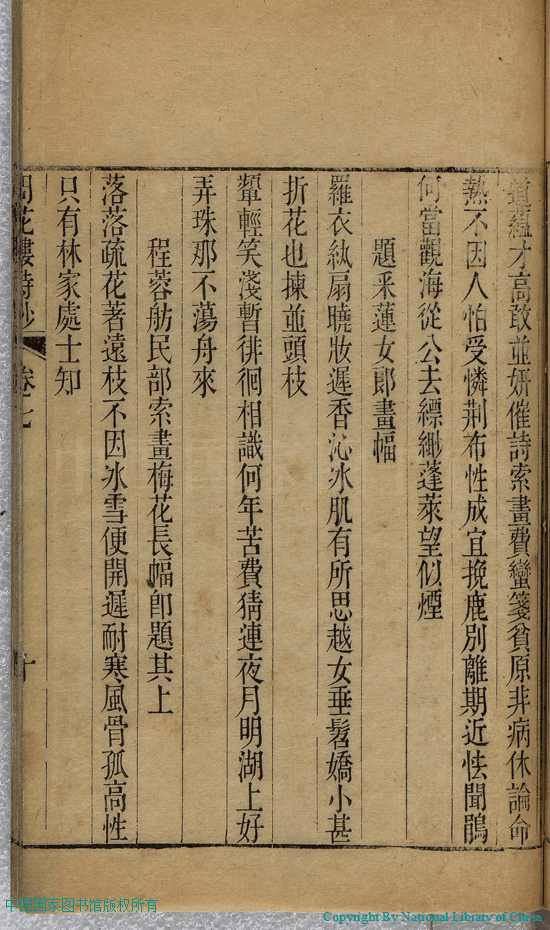 道蘊才高敢並妍催詩索畫費蠻箋貧原非病休論命
熱不因人怕受憐荆布性成宜挽鹿別離期近怯聞鵑
何當觀海從公去縹緲蓬萊望似煙
題釆蓮女郎畫幅
羅衣紈扇曉妝遲香沁冰肌有所思越女垂髫嬌小甚
折花也揀並頭枝
顰輕笑淺暫徘徊相識何年苦費猜連夜月明湖上好
弄珠那不蕩舟來
程蓉舫民部索畫梅花長幅卽題其上
落落疏花著遠枝不因冰雪便開遲耐寒風骨孤高性
只有林家處士知
花樓詩鈔 卷七 十
中国国家图书馆版权所有
Copyright By National Library of China